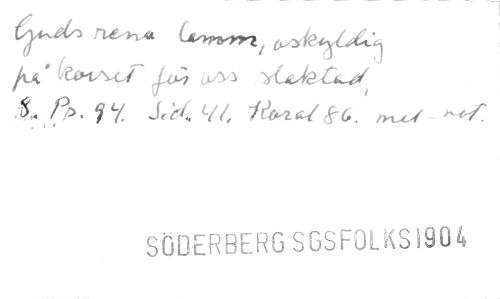 Guds rena lamm, oskyldig
på korset för oss slaktad,
S. Ps. 94. Sid. 41. Koral 86. mel-not.
SÖDERBERG SGSFOLKS1904